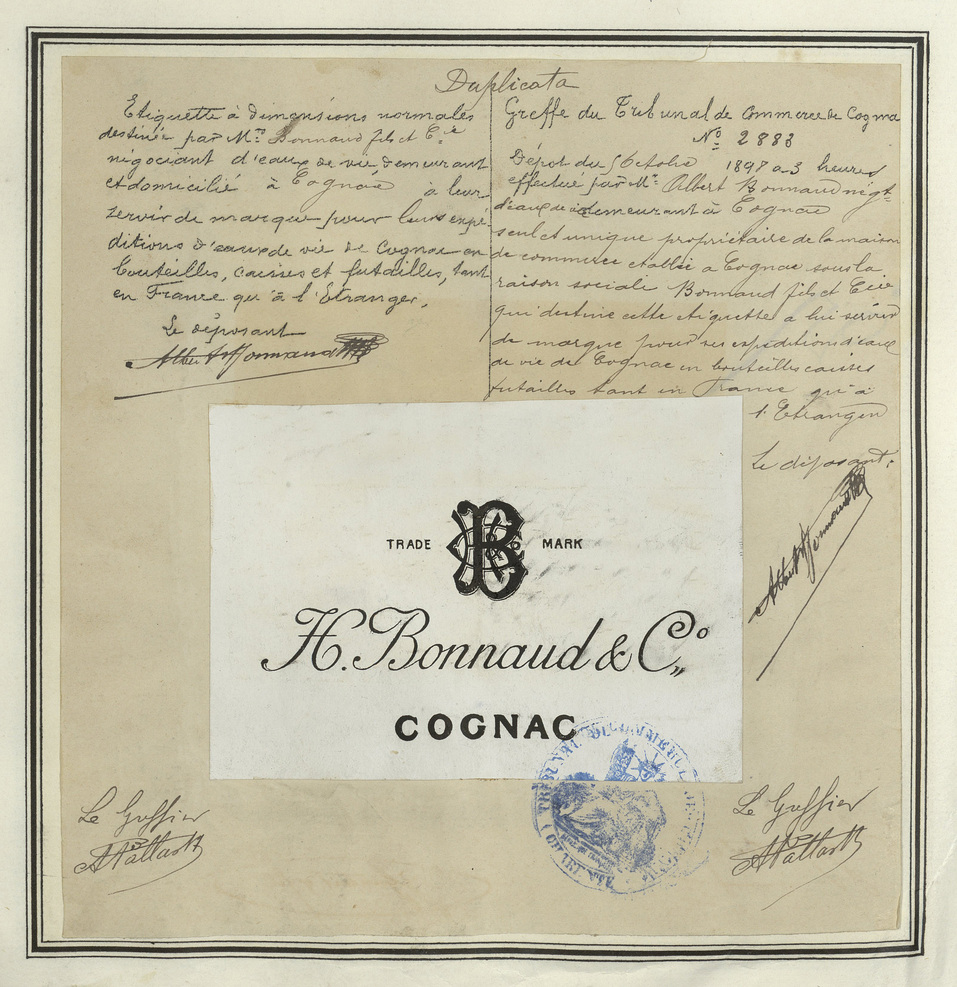 Duplicata
Etiquette à dimensions normales
destinée par Mrs Bonnaud fils et Cie
négociant d'eaux de vie demeurant
et domicilié à Cognac à leur
servir de marque pour leurs expé-
ditions d'eaux de vie de Cognac en
bouteilles, caisses et futailles, tant
en France qu'à l'Etranger.
Le déposant
Albert Bonnaud
Greffe du Tribunal de Commerce de Cognac
No 2883
Dépot du 5 Octobre 1897 a 3 heures
effectué par Mr Albert Bonnaud négt
d'eaux de vie demeurant à Cognac
seul et unique propriétaire de la maison
de commerce etablie a Cognac sous la
raison sociale Bonnaud fils et Cie
qui destine cette etiquette a lui servir
de marque pour ses expéditions d'eaux
de vie de Cognac en bouteilles caisses
futailles tant en France qu'à
l'Etranger
Le déposant:
Albert Bonnaud
TRADE MARK
H. Bonnaud & Co
COGNAC
TRIBUNAL DE COMMERCE
CHARENTE
Le Greffier
Le Greffier